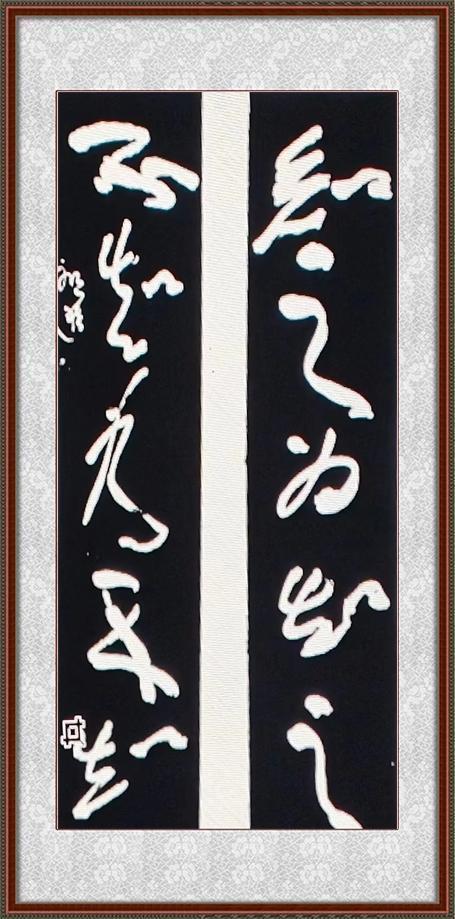 知之为知之
不知为不知